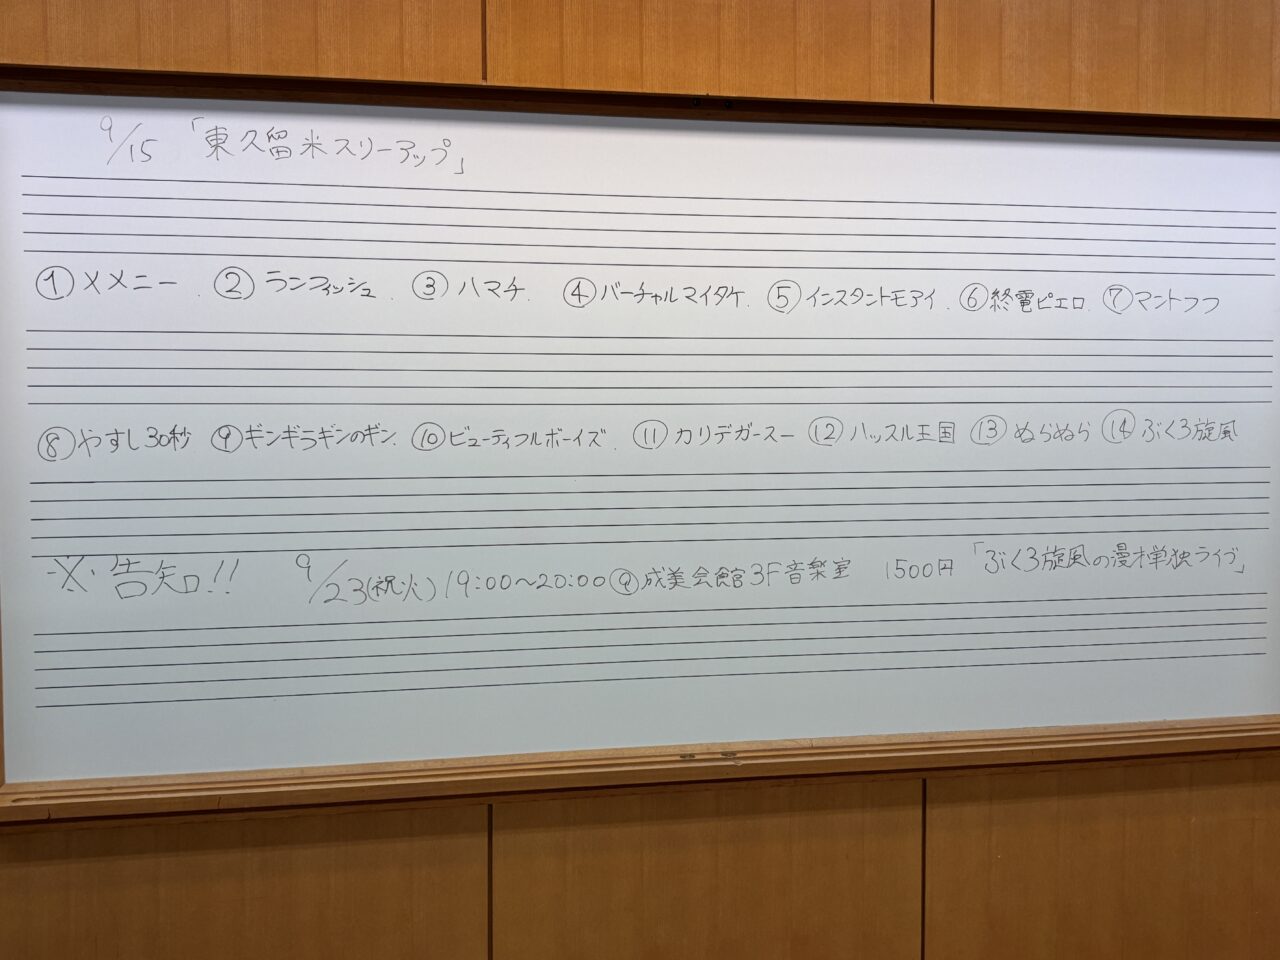 9/15 「東久留米スリーアップ」
①メメニー. ②ランフィッシュ. ③ハマチ. ④バーチャルマイタケ. ⑤インスタントモアイ. ⑥終電ピエロ. ⑦マントフフ
⑧やすし30秒 ⑨ギンギラギンのギン. ⑩ビューティフルボーイズ. ⑪カリデガースー ⑫ハッスル王国 ⑬ぬらぬら ⑭ぶくろ旋風
※告知!! 9/23(祝火) 19:00〜20:00@成美会館3F音楽室 1500円「ぶくろ旋風の漫才単独ライブ」